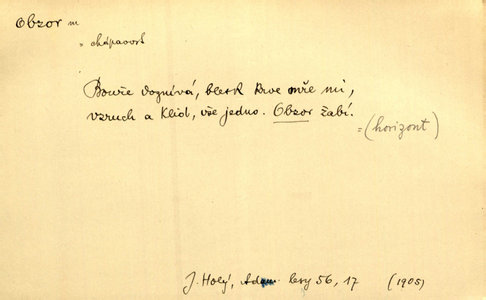 Obzor m
= chápavost
Bouře doznívá, blesk krve mře mi,
vzruch a klid, vše jedno. Obzor žabí.
= (horizont)
J. Holý, Adam. lesy 56, 17 (1905)